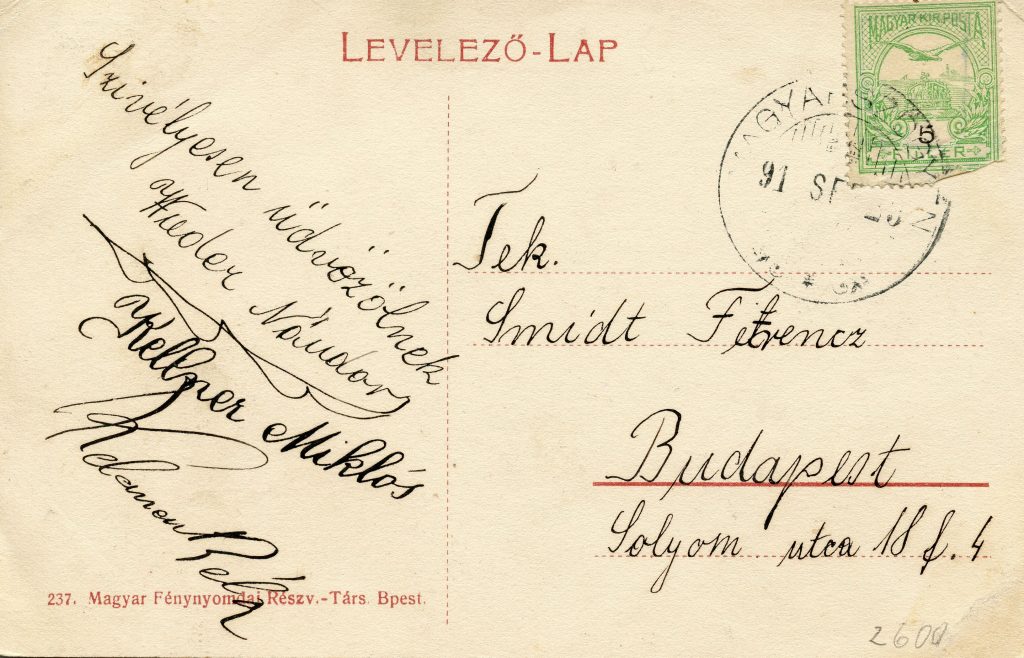 LEVELEZŐ-LAP
MAGYAR KIR. POSTA
5
Szivélyesen üdvözölnek
Nándor
Kellner Miklós
Béla
Tek.
Smidt Ferencz
Budapest
Solyom utca 18 f. 4
237. Magyar Fénynyomdai Részv.-Társ. Bpest.
2600